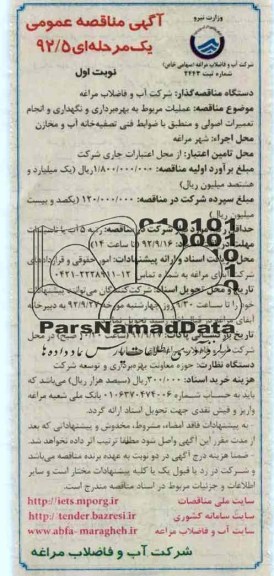 وزارت نیرو
شرکت آب و فاضلاب مراغه (سهامی خاص)
شماره ثبت ۲۴۴۳
آگهی مناقصه عمومی
یک‌مرحله‌ای ۹۲/۵
نوبت اول
دستگاه مناقصه‌گذار: شرکت آب و فاضلاب مراغه
موضوع مناقصه: عملیات مربوط به بهره‌برداری و نگهداری و انجام
تعمیرات اصولی و منطبق با ضوابط فنی تصفیه‌خانه آب و مخازن
محل اجراء: شهر مراغه
محل تامین اعتبار: از محل اعتبارات جاری شرکت
مبلغ برآورد اولیه مناقصه: ۱/۸۰۰/۰۰۰/۰۰۰ ریال (یک میلیارد و
هشتصد میلیون ریال)
مبلغ سپرده شرکت در مناقصه: ۱۲۰/۰۰۰/۰۰۰ (یکصد و بیست
میلیون ریال)
مناقصه: رتبه ۵ آب یا تاسیسات
۹۲/۹/۱۶ (تا ساعت ۱۴)
اسناد و ارائه پیشنهادات: امور حقوقی و قراردادهای
مراغه به شماره تماس ۱۲-۲۲۲۸۹۱۱-۰۴۲۱
تاریخ و محل تحویل اسناد: شرکت‌کنندگان می‌توانند پیشنهادات
خود را تا ساعت ۹:۳۰ روز چهارشنبه مورخه ۹۲/۹/۲۷ به دبیرخانه
ParsNamadData
پارس نماد داده‌ها
دستگاه نظارت: حوزه معاونت بهره‌برداری و توسعه شرکت
هزینه خرید اسناد: ۳۰۰/۰۰۰ ریال (سیصد هزار ریال) می‌باشد که
باید به حساب شماره ۰۱۰۶۳۷۰۴۷۴۰۰۶ بانک ملی شعبه مراغه
واریز و فیش نقدی جهت تحویل اسناد ارائه گردد.
- به پیشنهادات فاقد امضاء، مشروط، مخدوش و پیشنهاداتی که بعد
از مدت مقرر این آگهی واصل شود مطلقا ترتیب اثر داده نخواهد شد.
- ضمنا هزینه درج آگهی در دو نوبت به عهده برنده مناقصه می‌باشد
و شرکت در رد یا قبول یک یا کلیه پیشنهادات مختار است و سایر
اطلاعات و جزئیات مربوط در اسناد مناقصه مندرج است.
سایت ملی مناقصات http://iets.mporg.ir
سایت سامانه کشوری http://tender.bazresi.ir
سایت آب و فاضلاب مراغه www.abfa-maragheh.ir
شرکت آب و فاضلاب مراغه